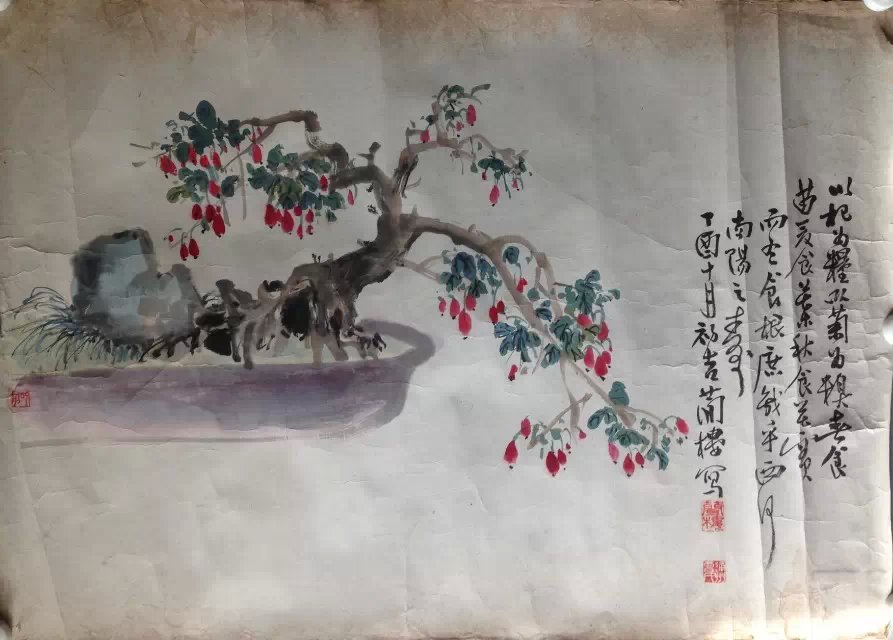 以杞为糧以菊为糗春食
苗夏食葉秋食花實
而冬食根庶幾乎西河
南陽之壽
丁酉十月初吉樓写